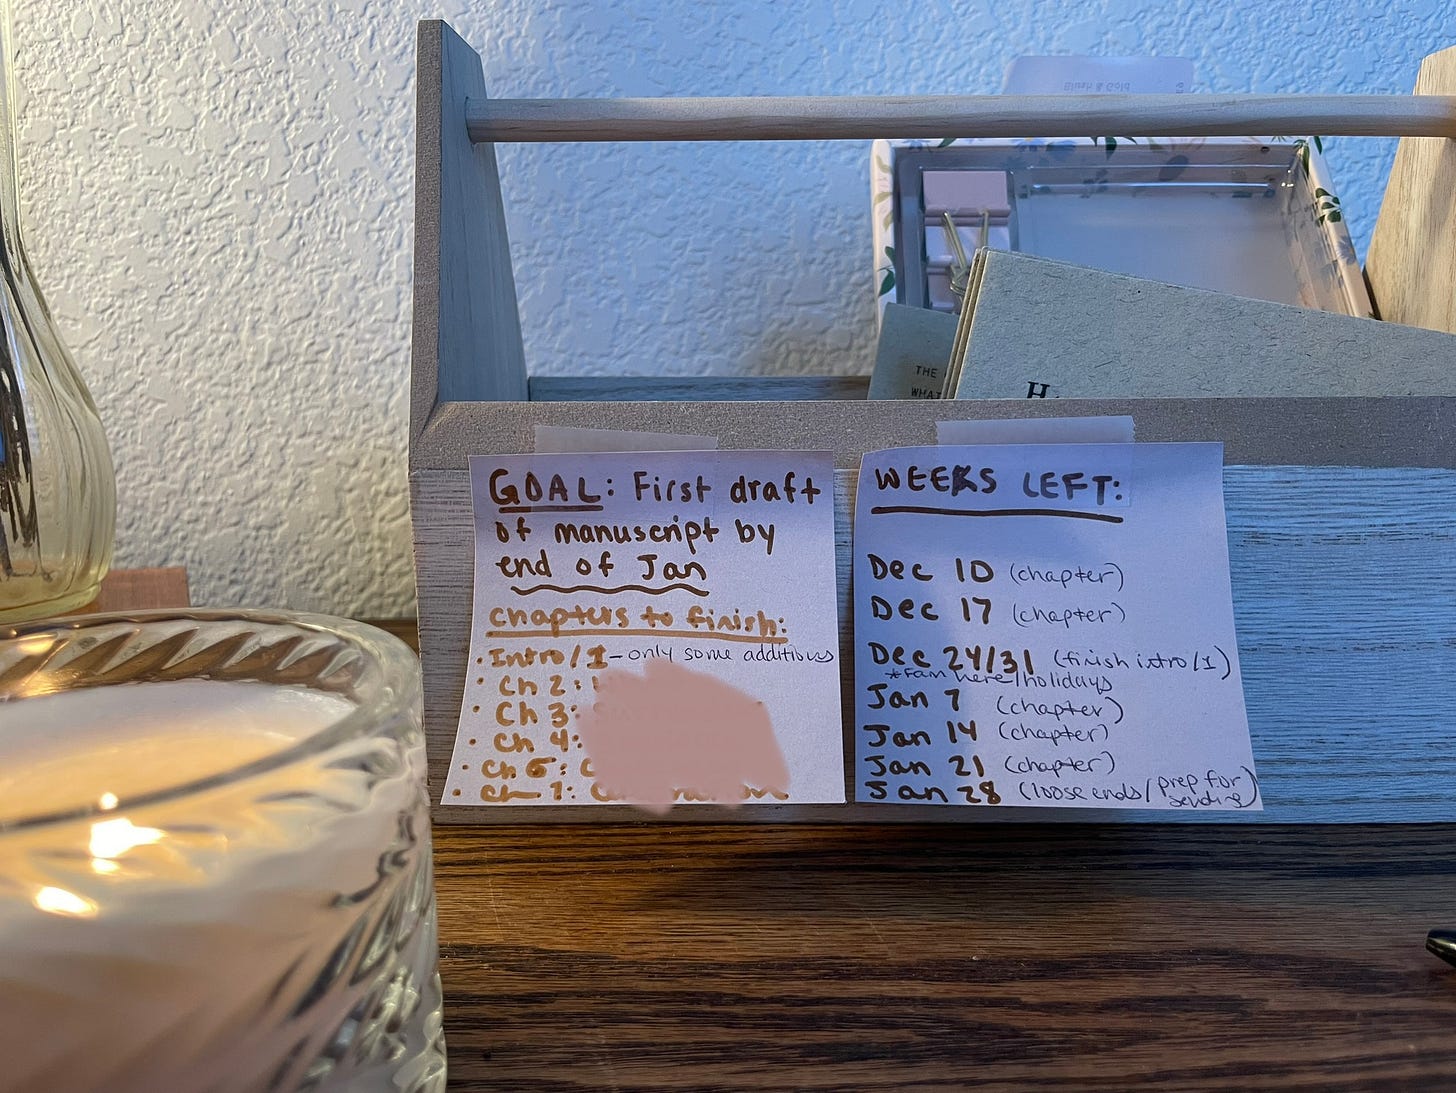 Blush & Gold
THE
WHAT
H
GOAL: First draft
of manuscript by
end of Jan
chapters to finish:
• Intro/1 - only some additions
• Ch 2:
• Ch 3:
• Ch 4:
• Ch 5: C
• Ch 7: C
WEEKS LEFT:
Dec 10 (chapter)
Dec 17 (chapter)
Dec 24/31 (finish intro/1)
*fam here/holidays
Jan 7 (chapter)
Jan 14 (chapter)
Jan 21 (chapter)
Jan 28 (loose ends/prep for
sending)